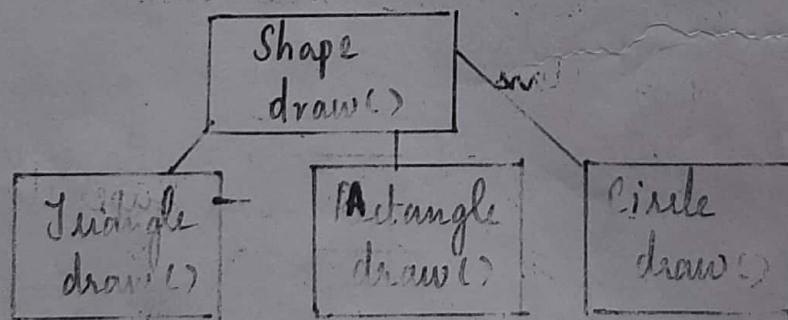 Shape
draw()
Triangle
draw()
Rectangle
draw()
Circle
draw()